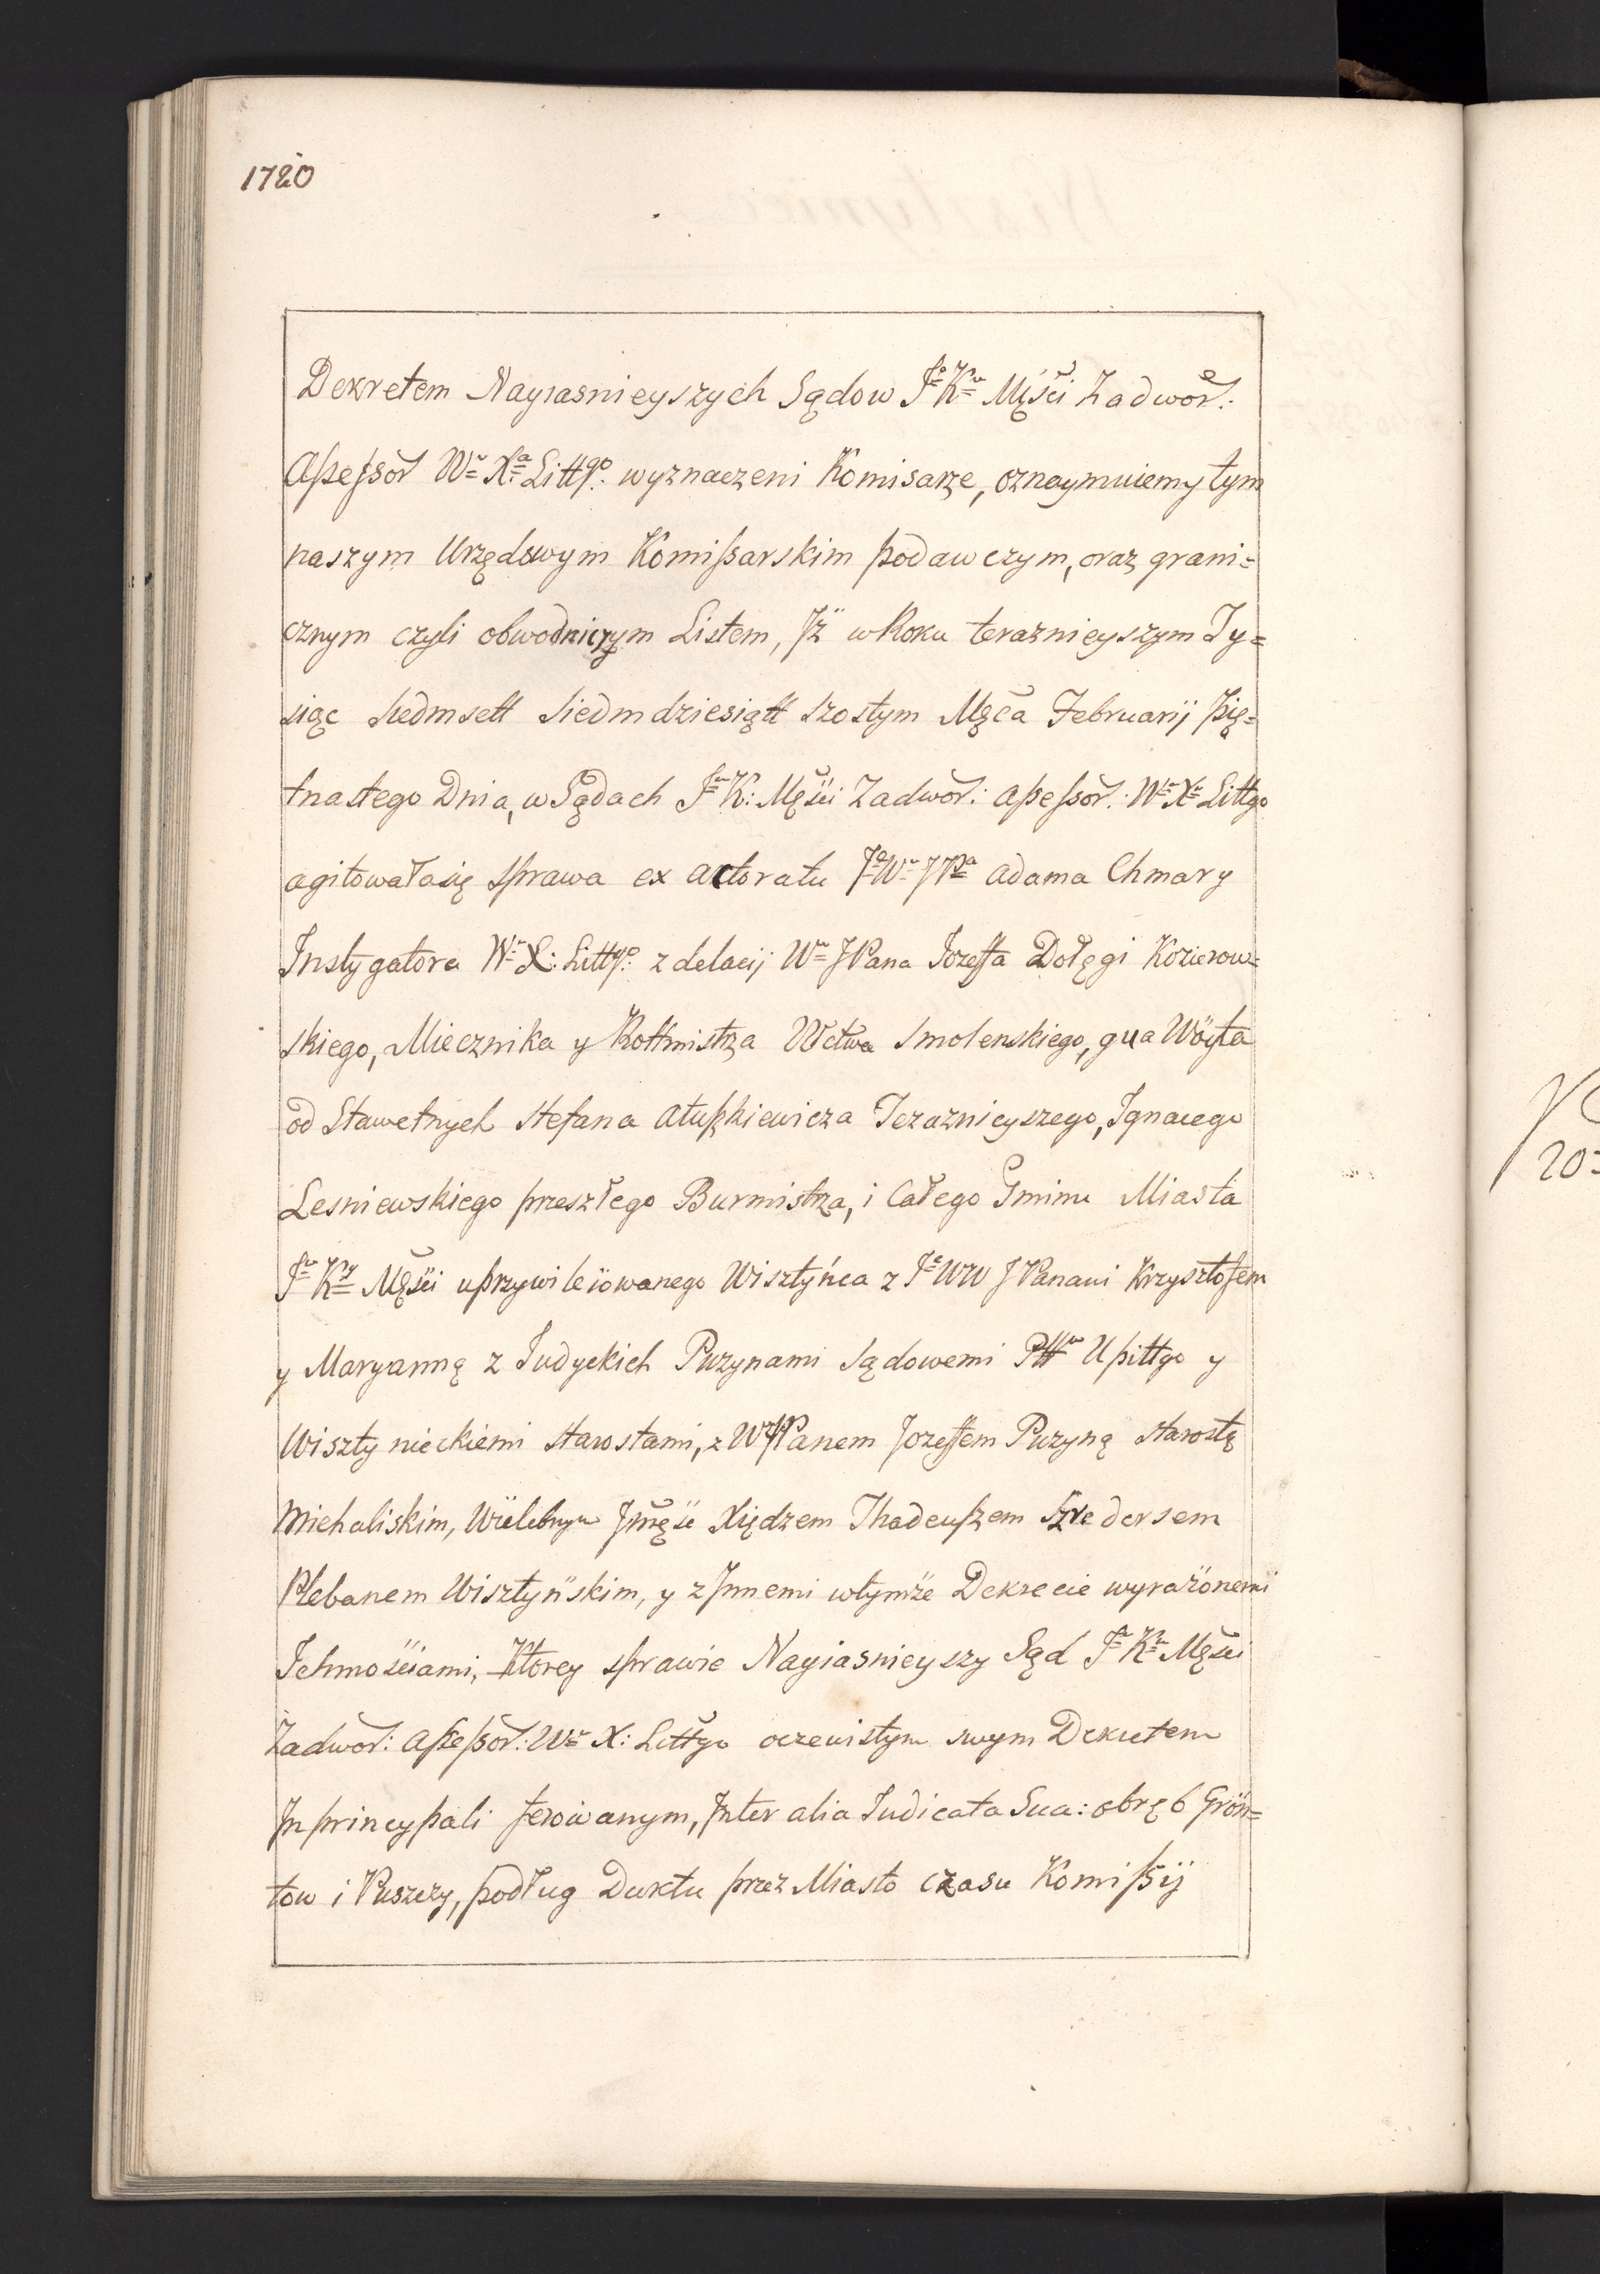 1780
Dekretem Nayiasnieyszych Sądow Jo Kr Męści Zadwor:
Assessor Wo Xa Littgo wyznaczeni Komisarze, oznaymuiemy tym
naszym Urzędowym Komissarskim podawczym, oraz grani=
cznym czyli obwodniczym Listem, Jż w Roku teraznieyszym Ty=
siąc siedmsett siedmdziesiątt szostym Męca Februarij pię=
tnastego Dnia, w Sądach Jo K: Męści Zadwor: Assessor: Wo Xo Littgo
agitowała się sprawa ex actoratu Jo Wo JPa Adama Chmary
Instygatora Wo X: Littgo z delacij Wo JPana Jozeffa Dołęgi Kozierow=
skiego, Miecznika y Rottmistrza Wctwa Smolenskiego, qua Wöyta
od Sławetnych Stefana Atuszkiewicza Teraznieyszego, Ignacego
Lesniewskiego przeszłego Burmistrza, i Całego Gminu Miasta
Jo Kry Męści uprzywileiowanego Wisztyńca z Jo WW JPanami Krzysztofem
y Maryanną z Judyckich Puzynami Sądowemi Pttu Upittgo y
Wisztynieckiemi Starostami, z WJPanem Jozeffem Puzyną Starostą
Michaliskim, Wielebnym Jmęści Xiędzem Thadeuszem Szredersem
Plebanem Wisztyńskim, y z Jnnemi w tymże Dekrecie wyrażonemi
Ichmościami, Ktorey sprawie Nayiasnieyszy Sąd Jo Kr Męści
Zadwor: Assessor: Wo X: Littgo oczewistym swym Dekretem
Jn princypali ferowanym, Jnter alia Judicata Sua: obręb Grön=
tow i Puszczy, podług Duktu przez Miasto czasu Komissij
20=